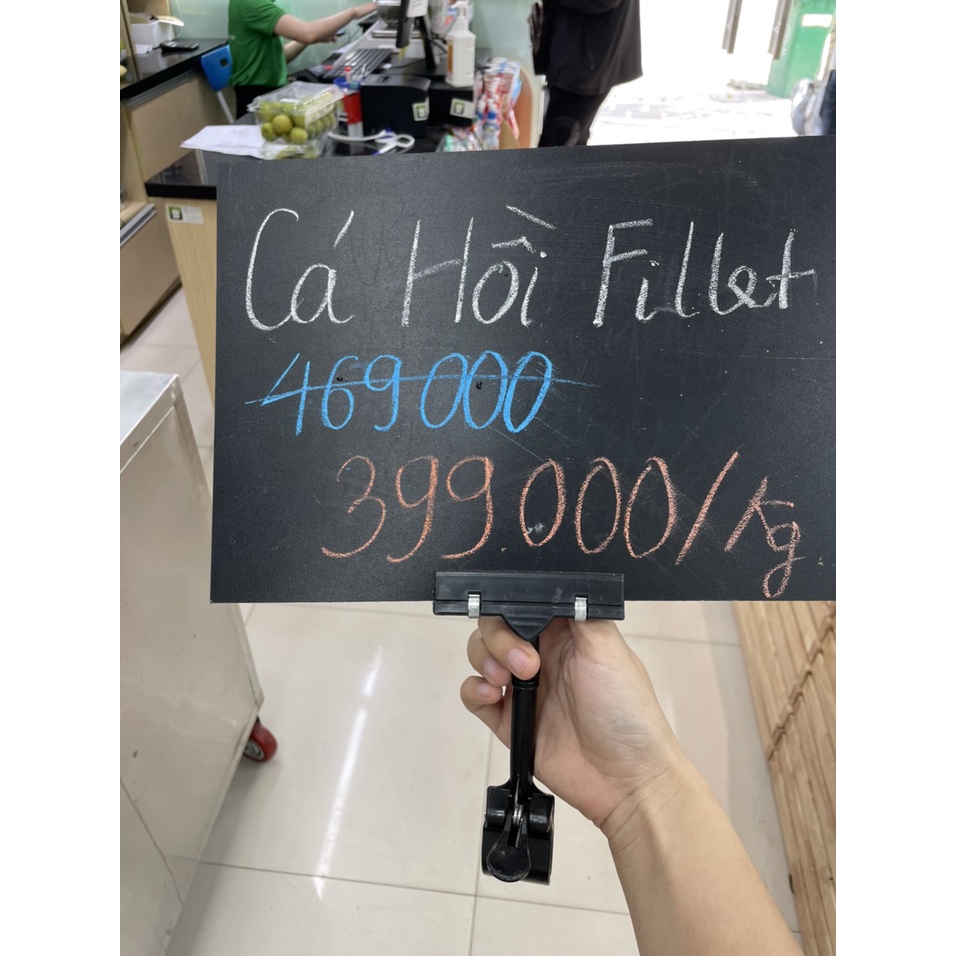 Cá Hồi Fillet
469000
399000/kg